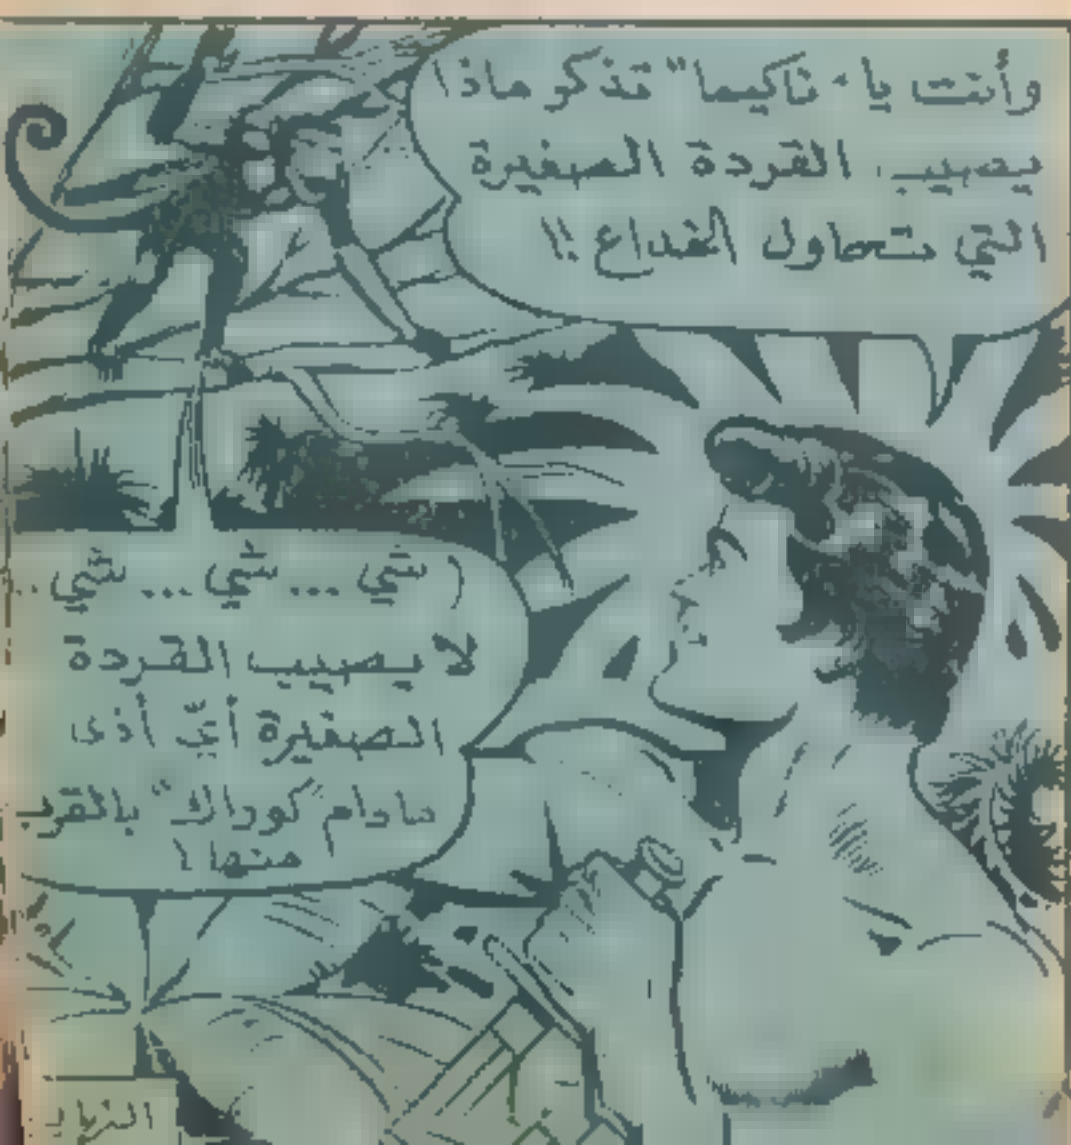 وأنت يا "ناكيما" تذكر ماذا
يصيب القردة الصغيرة
التي تحاول الخداع !!
( شي ... شي ... شي ..
لا يصيب القردة
الصغيرة أيّ أذى
مادام "كوداك" بالقرب
منها !